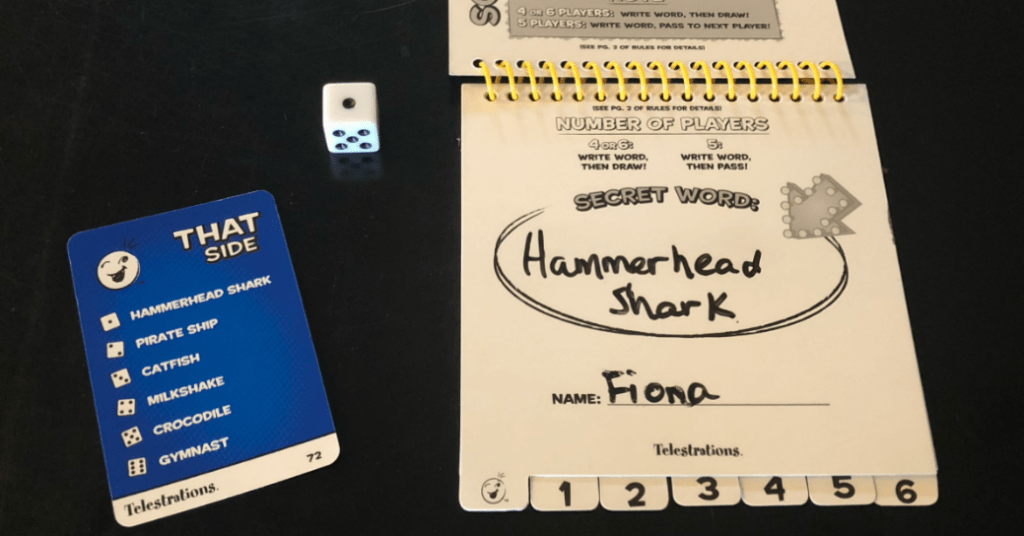 4 OR 6 PLAYERS: WRITE WORD, THEN DRAW!
5 PLAYERS: WRITE WORD, PASS TO NEXT PLAYER!
(SEE PG. 2 OF RULES FOR DETAILS)
(SEE PG. 2 OF RULES FOR DETAILS)
NUMBER OF PLAYERS
4 OR 6: 5:
WRITE WORD, WRITE WORD,
THEN DRAW! THEN PASS!
SECRET WORD:
Hammerhead
Shark
NAME: Fiona
Telestrations.
1 2 3 4 5 6
THAT
SIDE
HAMMERHEAD SHARK
PIRATE SHIP
CATFISH
MILKSHAKE
CROCODILE
GYMNAST
72
Telestrations.